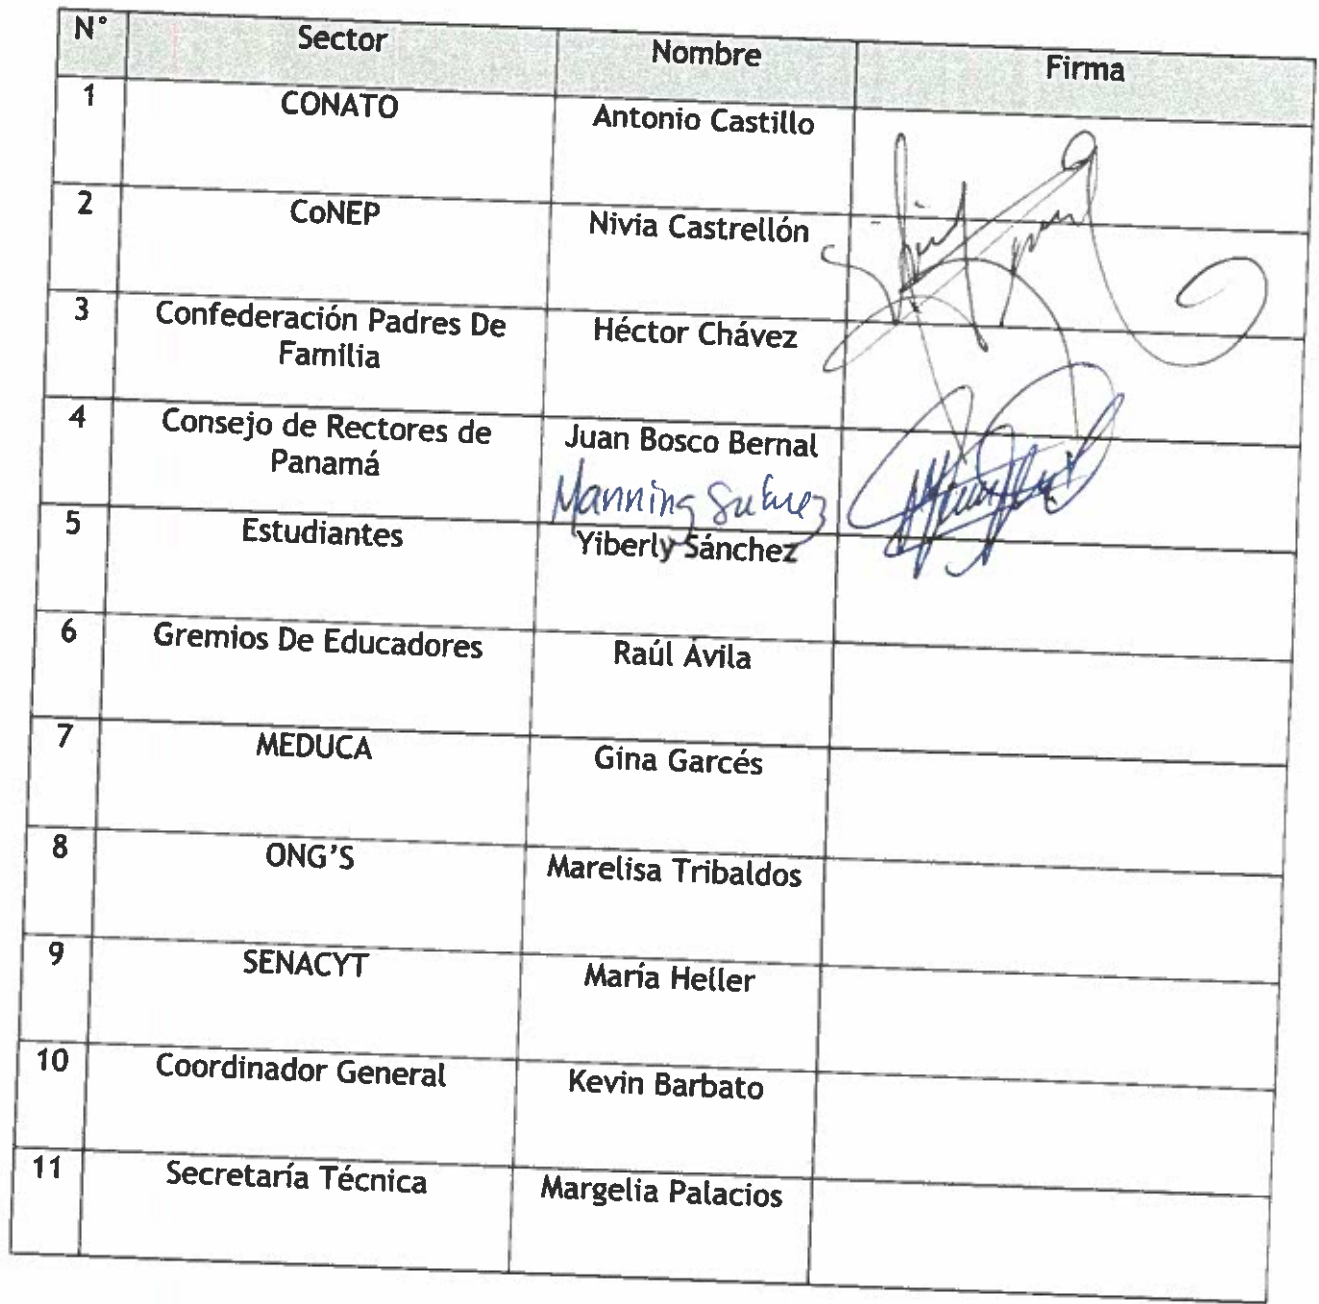 N° Sector Nombre Firma
1 CONATO Antonio Castillo
2 CoNEP Nivia Castrellón
3 Confederación Padres De Héctor Chávez
Familia
4 Consejo de Rectores de Juan Bosco Bernal
Panamá
Manning Suárez
5 Estudiantes Yiberly Sánchez
6 Gremios De Educadores Raúl Ávila
7 MEDUCA Gina Garcés
8 ONG'S Marelisa Tribaldos
9 SENACYT María Heller
10 Coordinador General Kevin Barbato
11 Secretaría Técnica Margelia Palacios